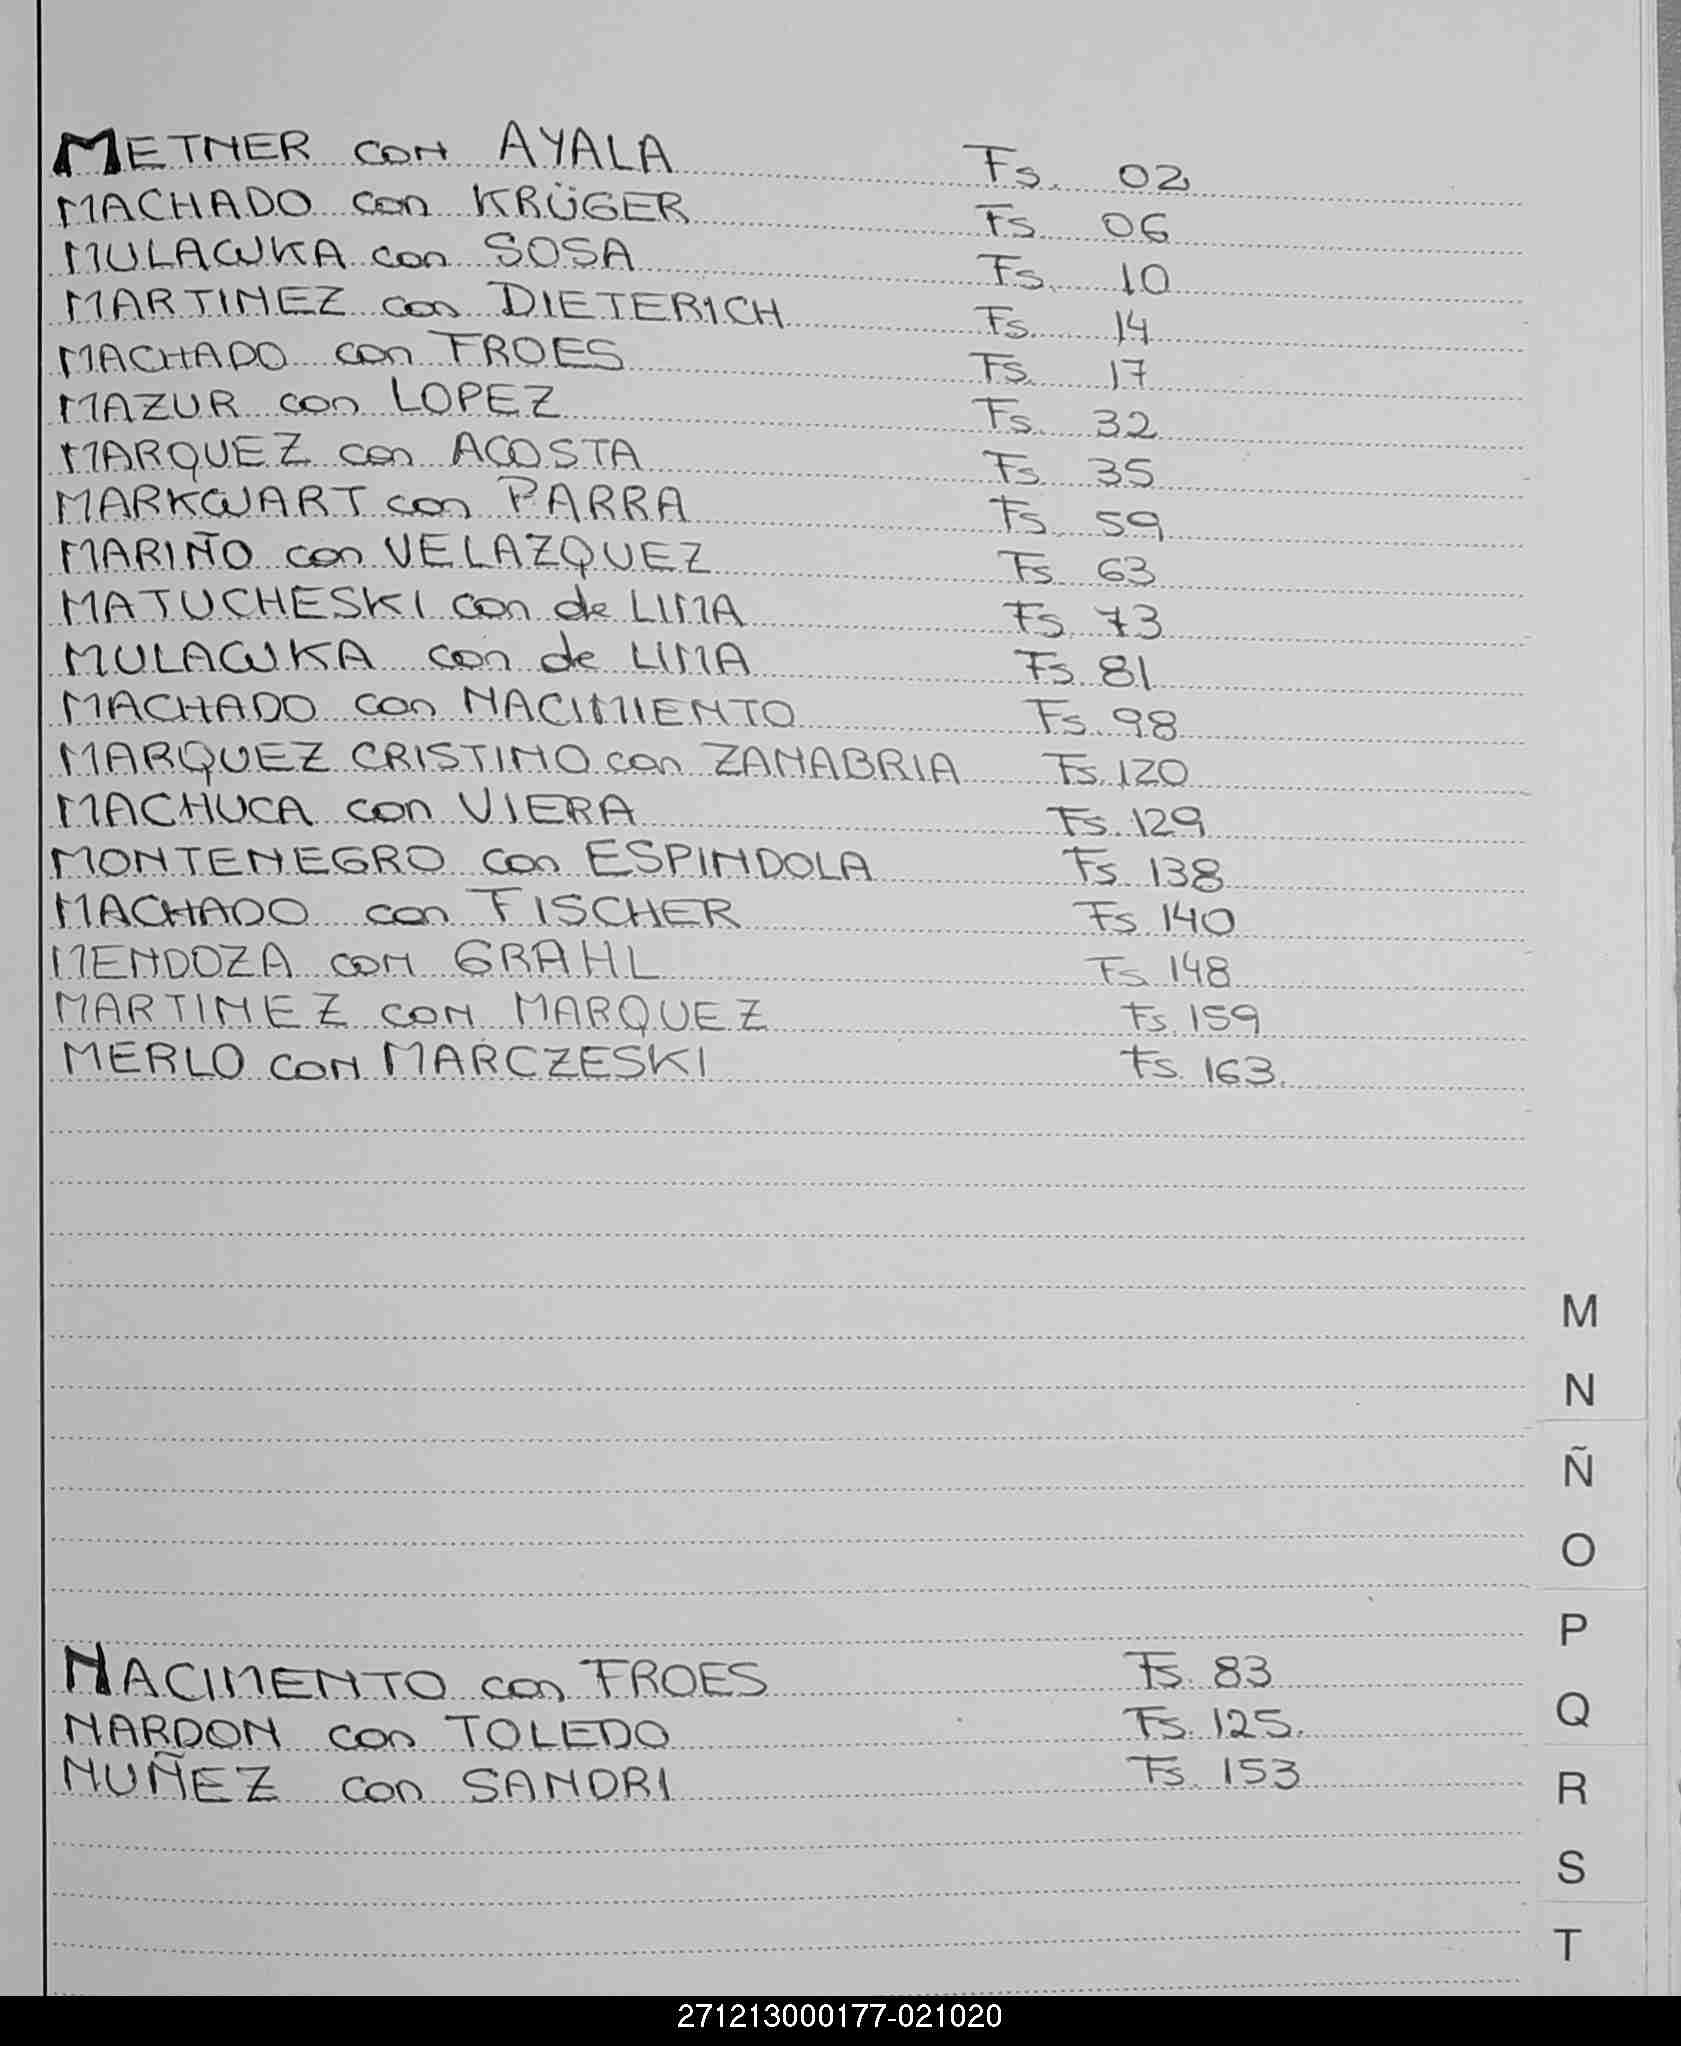 METNER con AYALA Fs. 02
MACHADO con KRÜGER Fs. 06
MULAWKA con SOSA Fs. 10
MARTINEZ con DIETERICH Fs. 14
MACHADO con FROES Fs. 17
MAZUR con LOPEZ Fs. 32
MARQUEZ con ACOSTA Fs. 35
MARKWART con PARRA Fs. 59
MARIÑO con VELAZQUEZ Fs 63
MATUCHESKI con de LIMA Fs. 73
MULAWKA con de LIMA Fs. 81
MACHADO con NACIMIENTO Fs. 98
MARQUEZ CRISTINO con ZANABRIA Fs. 120
MACHUCA con VIERA Fs. 129
MONTENEGRO con ESPINDOLA Fs. 138
MACHADO con FISCHER Fs. 140
MENDOZA con GRAHL Fs. 148
MARTINEZ con MARQUEZ Fs. 159
MERLO con MARCZESKI Fs. 163
M
N
Ñ
O
P
NACIMENTO con FROES Fs. 83
Q
NARDON con TOLEDO Fs. 125.
NUÑEZ con SANDRI Fs. 153
R
S
T
271213000177-021020